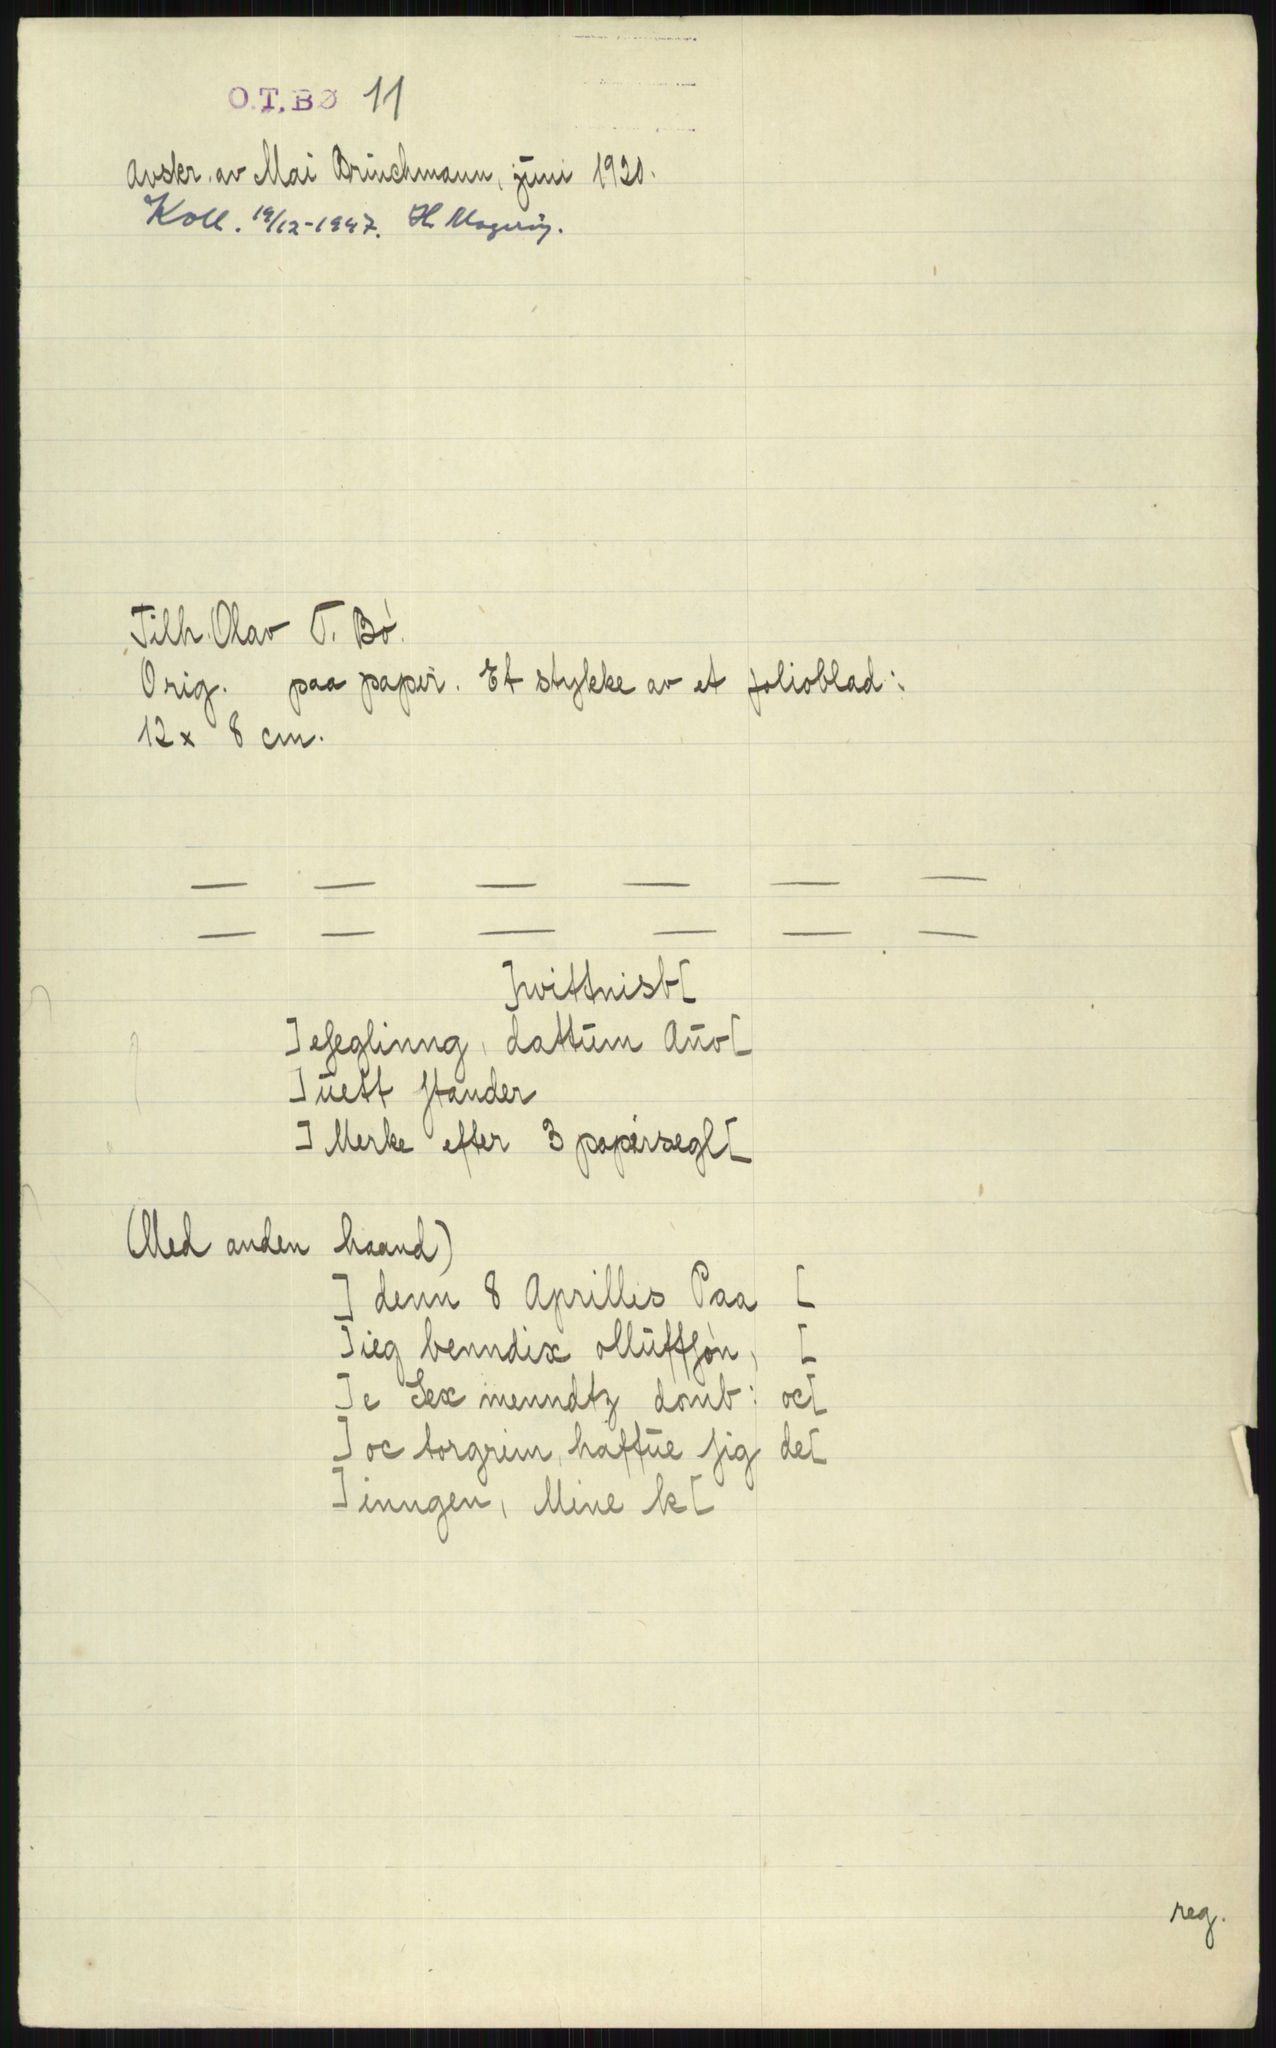 O.T. BØ 11
Avskr. av Mai Brinchmann, juni 1920.
Koll. 19/12-1947. H. Magerøy.
Tilh. Olav T. Bø.
Orig. paa papir. Et stykke av et folioblad:
12 x 8 cm.
— — — — — —
— — — — — —
]wittnisb[
]eseglinng, dattum Año[
]uest stander
] Merke efter 3 papirsegl[
(Med anden haand)
] denn 8 Aprilles Paa [
]ieg benndix olluffsøn, [
]e Sex menndtz domb: oc[
] oc torgrim, haffue sig de[
]inngen, Mine k[
reg.